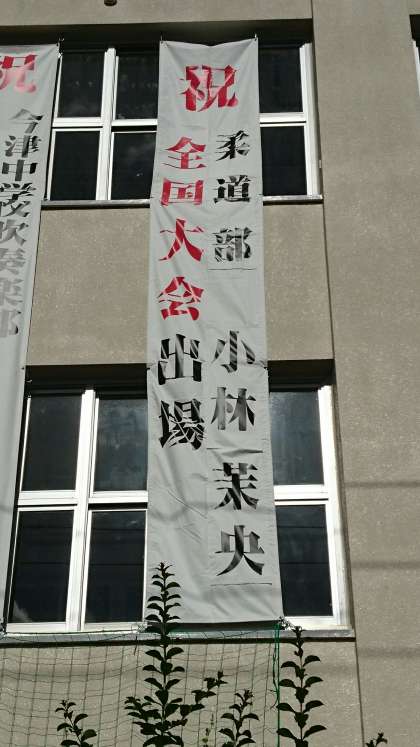 祝
柔道部 小林 茉央
全国大会出場
祝
今津中学校吹奏楽部